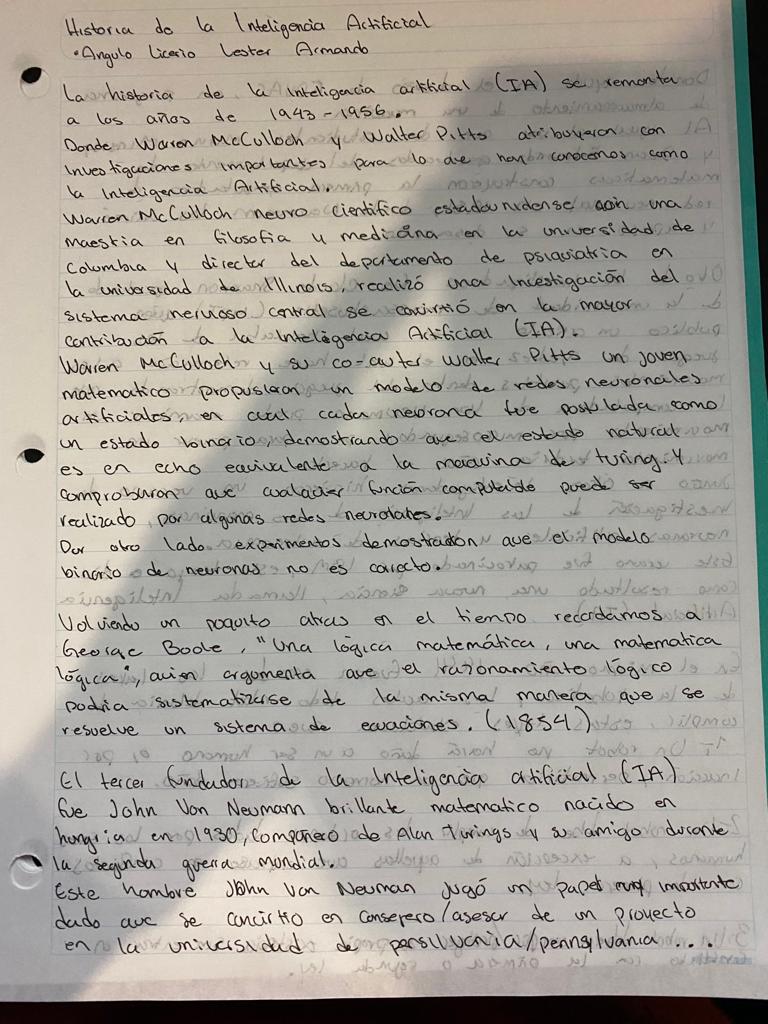 Historia de la Inteligencia Artificial
• Angulo Licerio Lester Armando
La historia de la Inteligencia artificial (IA) se remonta
a los años de 1943-1956.
Donde Warren McCulloch y Walter Pitts atribuyeron con
Investigaciones importantes para lo que hoy conocemos como
la Inteligencia Artificial.
Warren McCulloch neuro científico estadounidense con una
maestria en filosofia y medicina en la universidad de
Columbia y director del departamento de psiquiatria en
la universidad de Illinois, realizó una Investigación del
sistema nervioso central se convirtió en la mayor
contribución a la Inteligencia Artificial (IA).
Warren McCulloch y su co-autor Walter Pitts un joven
matematico propusieron un modelo de redes neuronales
artificiales, en cual cada neurona fue postulada como
un estado binario, demostrando que el estado natural
es en echo equivalente a la maquina de turing. Y
comprobaron que cualquier función computable puede ser
realizado por algunas redes neuronales.
Por otro lado experimentos demostraron que el modelo
binario de neuronas no es correcto.
Volviendo un poquito atras en el tiempo recordamos a
George Boole, "Una lógica matemática, una matematica
lógica", quien argumenta que el razonamiento lógico
podria sistematizarse de la misma manera que se
resuelve un sistema de ecuaciones. (1854)
El tercer fundador de la Inteligencia artificial (IA)
fue John Von Neumann brillante matematico nacido en
hungria en 1930, compañero de Alan Turings y su amigo durante
la segunda guerra mundial.
Este hombre John Von Neuman jugó un papel muy importante
dado que se convirtio en consejero/asesor de un proyecto
en la universidad de pensilvania/pennsylvania....